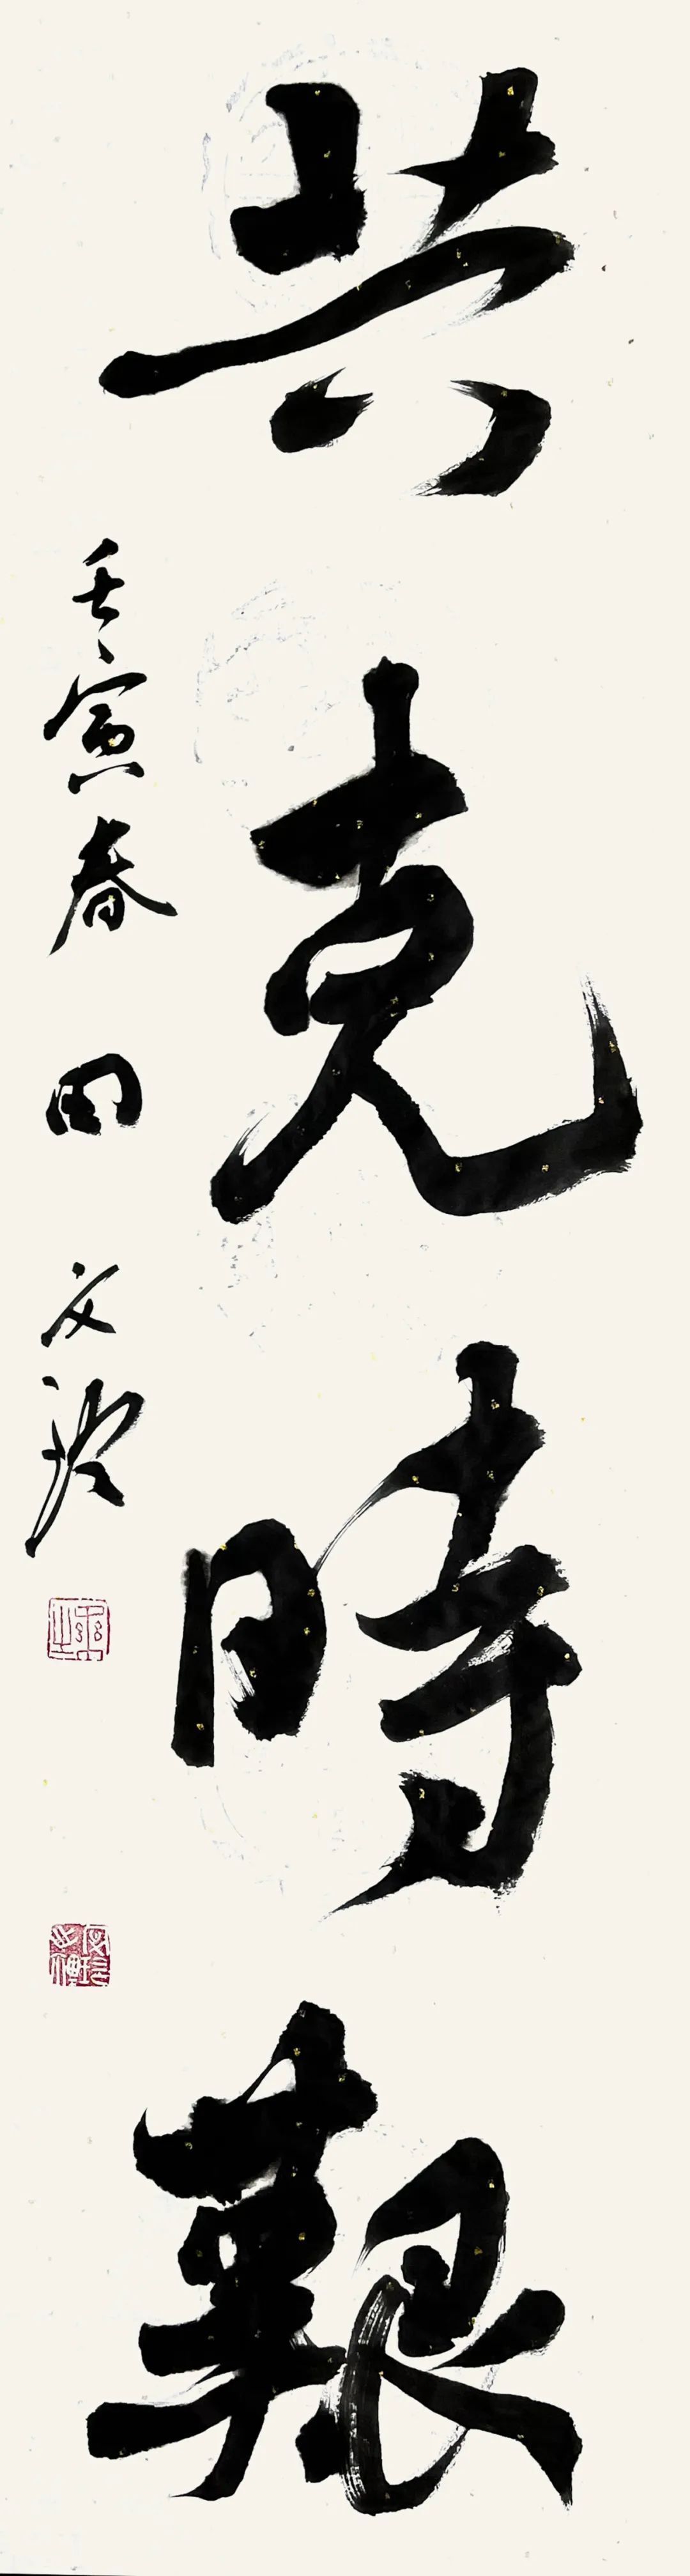 共克時艱
壬寅春 田文